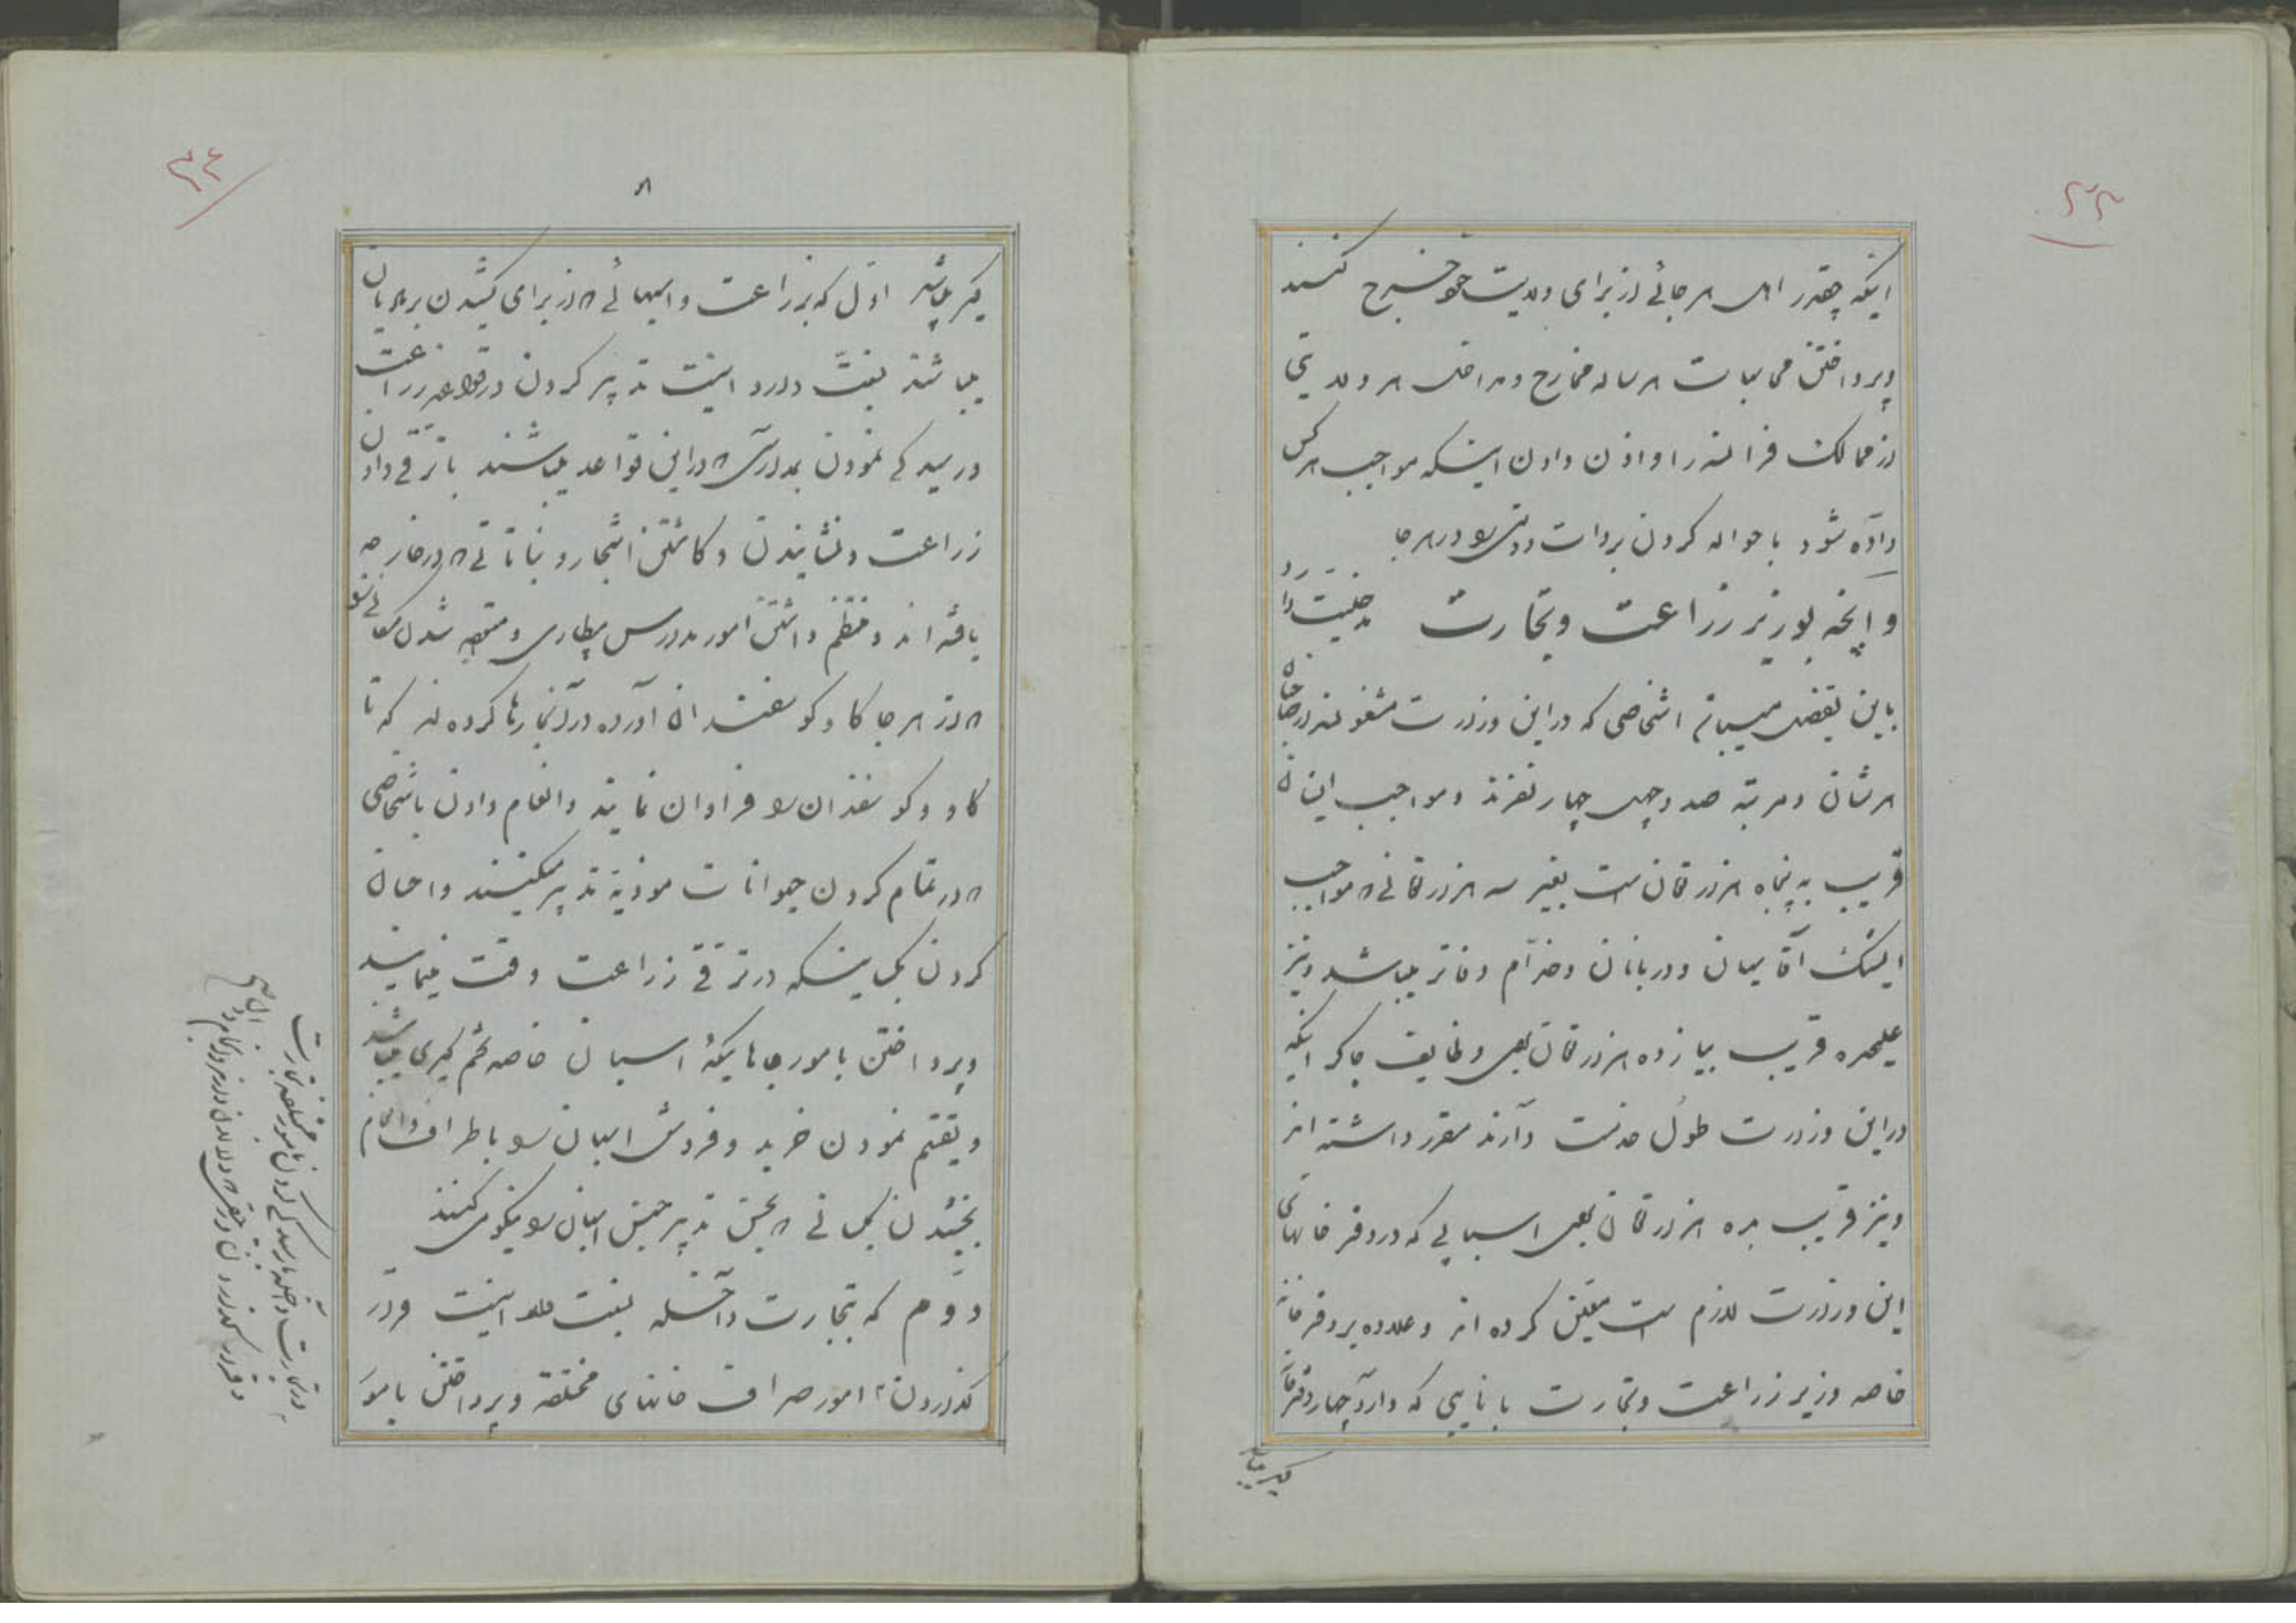 ۳۳
اینکه چقدر اهل هر جائی از برای ولایت خود خرج کنند
و پرداختن محاسبات هر ساله مخارج و مداخل هر ولایتی
از ممالک فرانسه را و اذن دادن اینکه مواجب هر کس
داده شود با حواله کردن بروات دولتی را در هر جا
و آنچه بوزیر زراعت و تجارت مدخلیت دارد
باین تفصیل میباشد اشخاصی که در این وزارت مشغولند در
هر شان و مرتبه صد و چهل چهار نفرند و مواجب اینان
قریب به پنجاه هزار تومان است بغیر سه هزار تومانی که مواجب
ایشک آقاسیان و دربانان و خدام دفاتر میباشد و نیز
علیحده قریب بیازده هزار تومان بجهت وظایف چاکرانیکه
در این وزارت طول خدمت دارند مقرر داشته اند
و نیز قریب بده هزار تومان بجهت اسبابی که در دفترخانهای
این وزارت لازم است معین کرده اند و علاوه بر دفترخانه
خاصه وزیر زراعت و تجارت با نایبی که دارد چهار دفترخانه
۳۴
۸
دیگر میباشد اول که بزراعت و اسبهائی که از برای کشیدن
میباشند نسبت دارد اینست تدبیر کردن در قواعد زراعت
و رسیدگی نمودن بمدارسی که در این قواعد میباشند با ترقی دادن
زراعت و نشانیدن و کاشتن اشجار و نباتاتی که در خارجه
یافته اند و منتظم داشتن امور مدارس بیطاری و متوجه شدن
که از هر جا گاو گوسفندان آورده در آنجا رها کرده اند که تا
گاو و گوسفندان را فراوان نمایند و انعام دادن باشخاصی
که در تمام کردن حیوانات موذیه تدبیر میکنند و احسان
کردن بکسانیکه در ترقی زراعت دقت مینمایند
و پرداختن بامور جاهائیکه اسبان خاصه تخم گیری میباشد
و تقسیم نمودن خرید و فروش اسبان را باطراف و انعام
بخشیدن بکسانی که بحسن تدبیر جنس اسبان را نیکو میکنند
دوم که بتجارت داخله نسبت دارد اینست قرار
گذاردن امور صراف خانهای مختلفه و پرداختن بامور